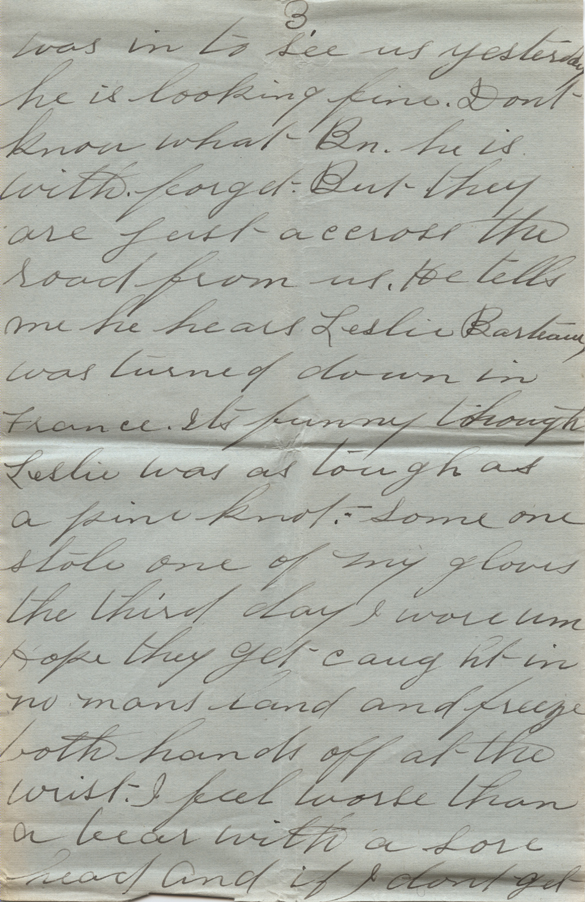 3
was in to see us yesterday
he is looking fine. Dont
know what Bn. he is
with. forget. But they
are just accross the
road from us. He tells
me he hears Leslie
was turned down in
France. Its funny though
Leslie was as tough as
a pine knot. - Some one
stole one of my gloves
the third day I wore um
Hope they get caught in
no mans land and freeze
both hands off at the
wrist. I feel worse than
a bear with a sore
head and if I dont get